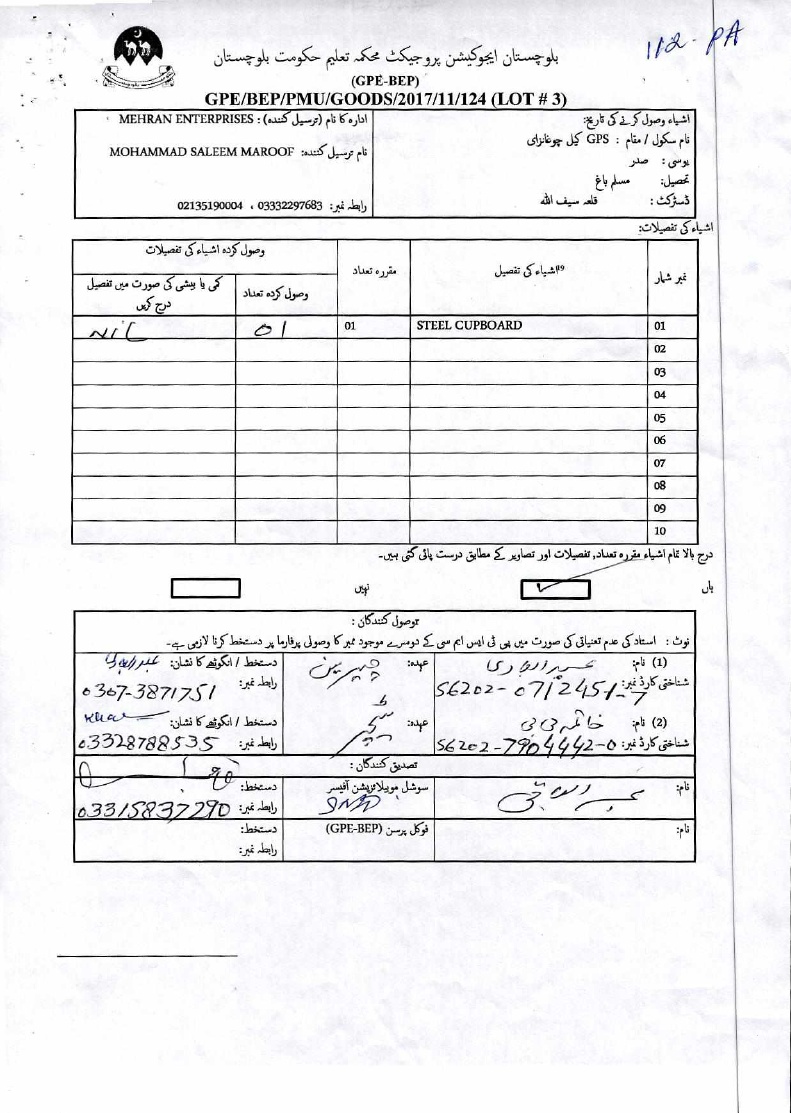 112-PA
بلوچستان ایجوکیشن پروجیکٹ محکمہ تعلیم حکومت بلوچستان
(GPE-BEP)
GPE/BEP/PMU/GOODS/2017/11/124 (LOT # 3)
اشیاء وصول کرنے کی تاریخ:
نام سکول / مقام : GPS کیل چوغانزای
یوسی: صدر
تحصیل: مسلم باغ
ڈسٹرکٹ: قلعہ سیف اللہ
ادارہ کا نام (ترسیل کنندہ) : MEHRAN ENTERPRISES
نام ترسیل کنندہ: MOHAMMAD SALEEM MAROOF
رابطہ نمبر: 03332297683 ، 02135190004
اشیاء کی تفصیلات:
نمبر شمار
اشیاء کی تفصیل
مقررہ تعداد
وصول کردہ اشیاء کی تفصیلات
وصول کردہ تعداد
کمی یا بیشی کی صورت میں تفصیل درج کریں
01 STEEL CUPBOARD 01 01 NIL
02
03
04
05
06
07
08
09
10
درج بالا تمام اشیاء مقررہ تعداد، تفصیلات اور تصاویر کے مطابق درست پائی گئی ہیں۔
ہاں ✓ نہیں
وصول کنندگان :
نوٹ : استاد کی عدم تعنیاتی کی صورت میں پی ٹی ایس ایم سی کے دوسرے موجود ممبر کا وصولی پرفارما پر دستخط کرنا لازمی ہے۔
(1) نام:
شناختی کارڈ نمبر: 56202-0712451-7
عہدہ: چیرمین
دستخط / انگوٹھے کا نشان:
رابطہ نمبر: 0307-3871751
(2) نام:
شناختی کارڈ نمبر: 56202-7904442-0
عہدہ:
دستخط / انگوٹھے کا نشان:
رابطہ نمبر: 03328788535
تصدیق کنندگان :
نام:
سوشل موبیلائزیشن آفیسر
دستخط:
رابطہ نمبر: 03315837290
نام:
فوکل پرسن (GPE-BEP)
دستخط:
رابطہ نمبر: